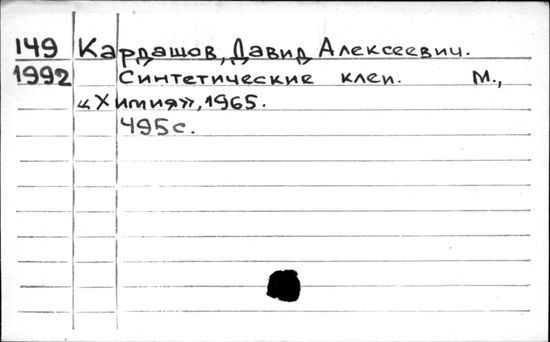 149 Кардашов, Давид Алексеевич.
1992 Синтетические клеи. М.,
«Химия», 1965.
495 с.